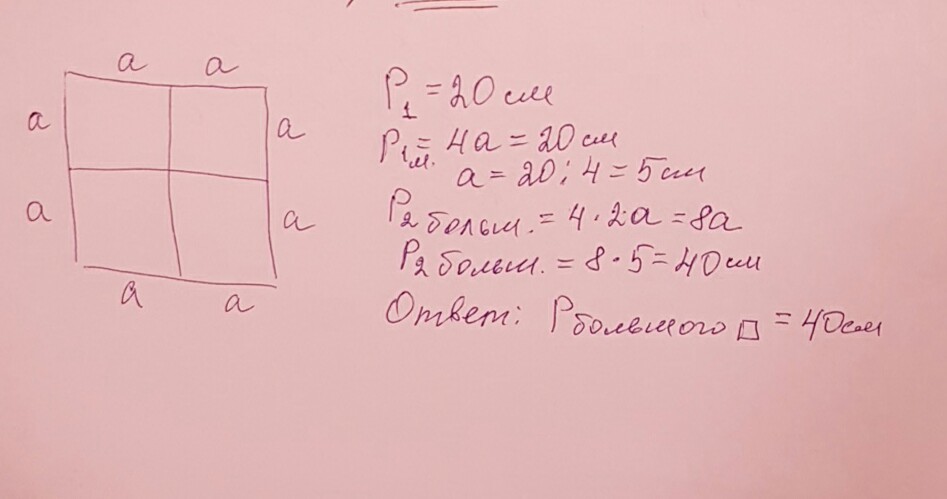 a a
a a
a a
a a
P₁ = 20 см
P₁м. = 4a = 20 см
a = 20 : 4 = 5 см
P₂ больш. = 4 · 2a = 8a
P₂ больш. = 8 · 5 = 40 см
Ответ: P большого □ = 40 см